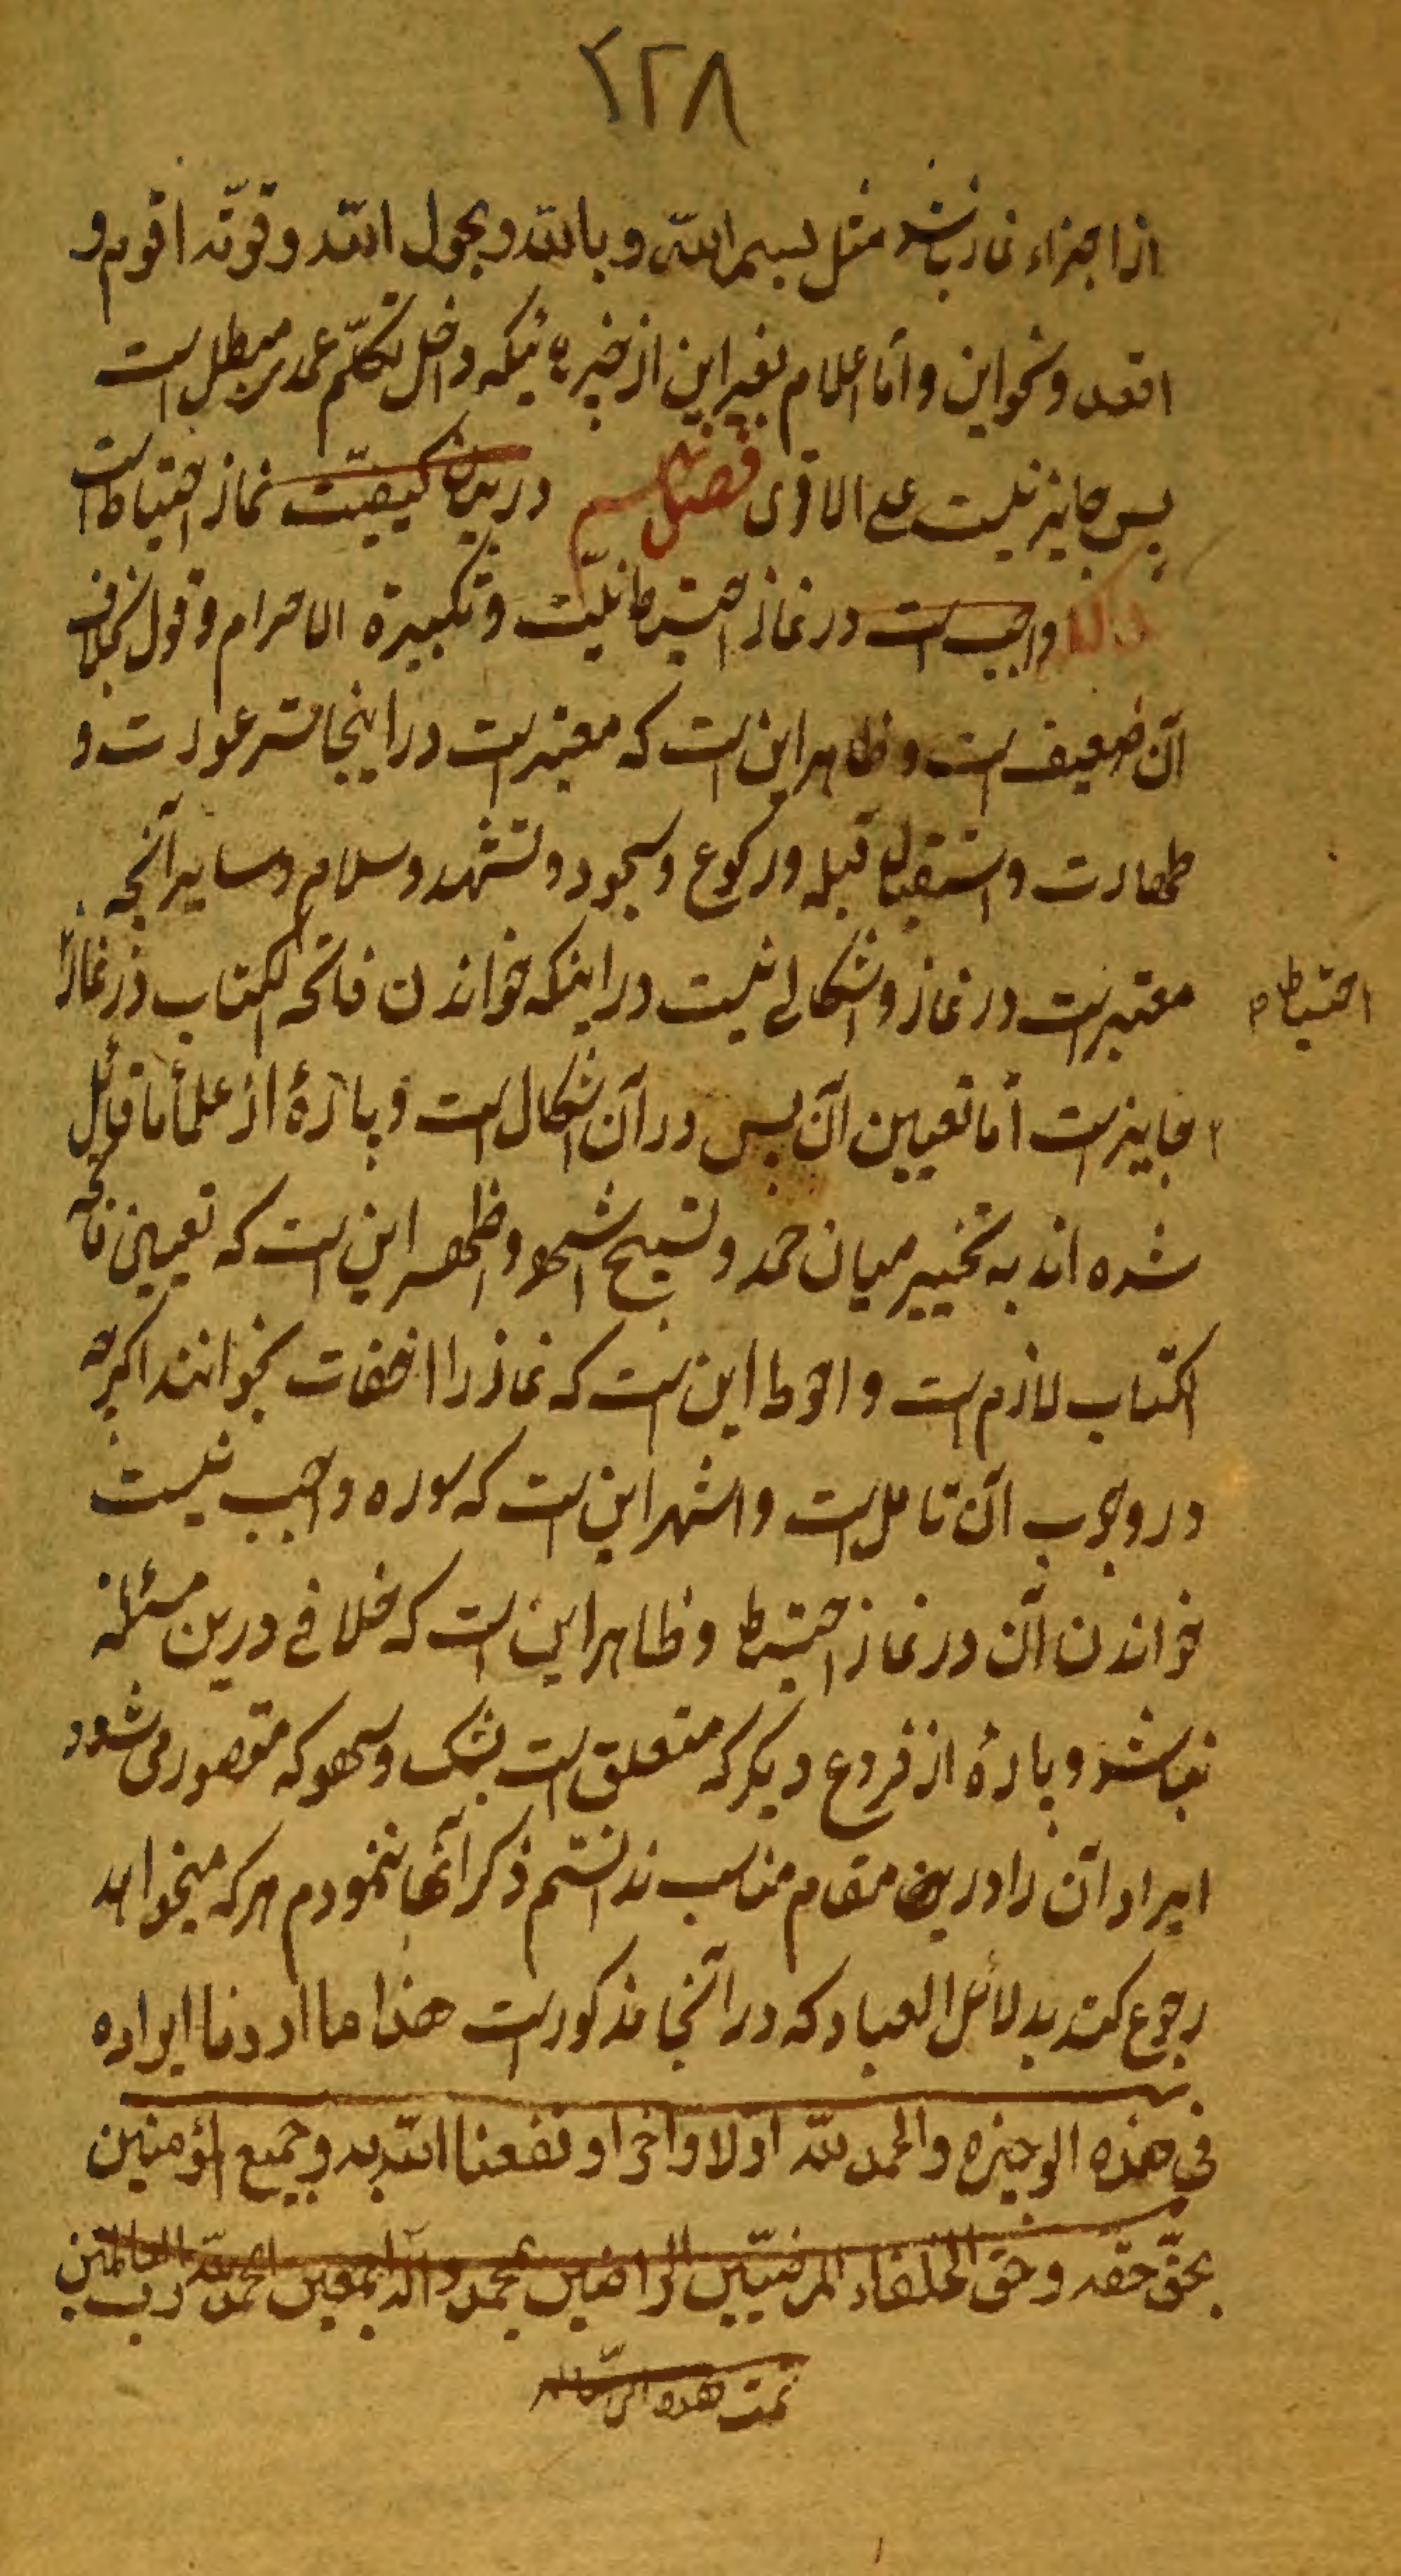 ۲۲۸
از اجزاء نماز باشد مثل بسم الله و بالله و بحول الله و قوّته اقوم و
اقعد و نحو این و امّا اعلام بغیر این از که داخل تکلّم عمدی مبطل است
پس جایز نیست علی الاقوی فصل در بیان کیفیّت نماز احتیاط است
واجب است در نماز احتیاط نیّت و تکبیرة الاحرام و قول بخلاف
آن ضعیف است و ظاهر این است که معتبر است در اینجا ستر عورت و
طهارت و استقبال قبله و رکوع و سجود و تشهد و سلام و سایر آنچه
معتبر است در نماز و اشکالے نیست در اینکه خواندن فاتحه الکتاب در نماز
احتیاط
جایز است امّا تعیین آن پس در آن اشکال است و پارهٔ از علمأ ما قائل
شده اند به تخییر میان حمد و تسبیح و اظهر این است که تعیین فاتحه
الکتاب لازم است و احوط این است که نماز را اخفات بخوانند اگرچه
در وجوب آن تامل است و اشهر این است که سوره واجب نیست
خواندن آن در نماز احتیاط و ظاهر این است که خلافے درین مسئله
نباشد و پارهٔ از فروع دیگر که متعلق است بشک و سهو که متصور می شود
ایراد آن را درین مقام مناسب ندانستم ذکر آنها ننمودم هرکه میخواهد
رجوع کند بدلائل العباد که در آنجا مذکور است هذا ما اردنا ایراده
فی هذه الوجیزه و الحمد لله اولا و آخرا و نفعنا الله به و جمیع المؤمنین
بحقّ حقّه و حق الخلفاء المرضیّین الراضین بمحمد و آله اجمعین الحمد لله رب العالمین
تمت هذه الرساله